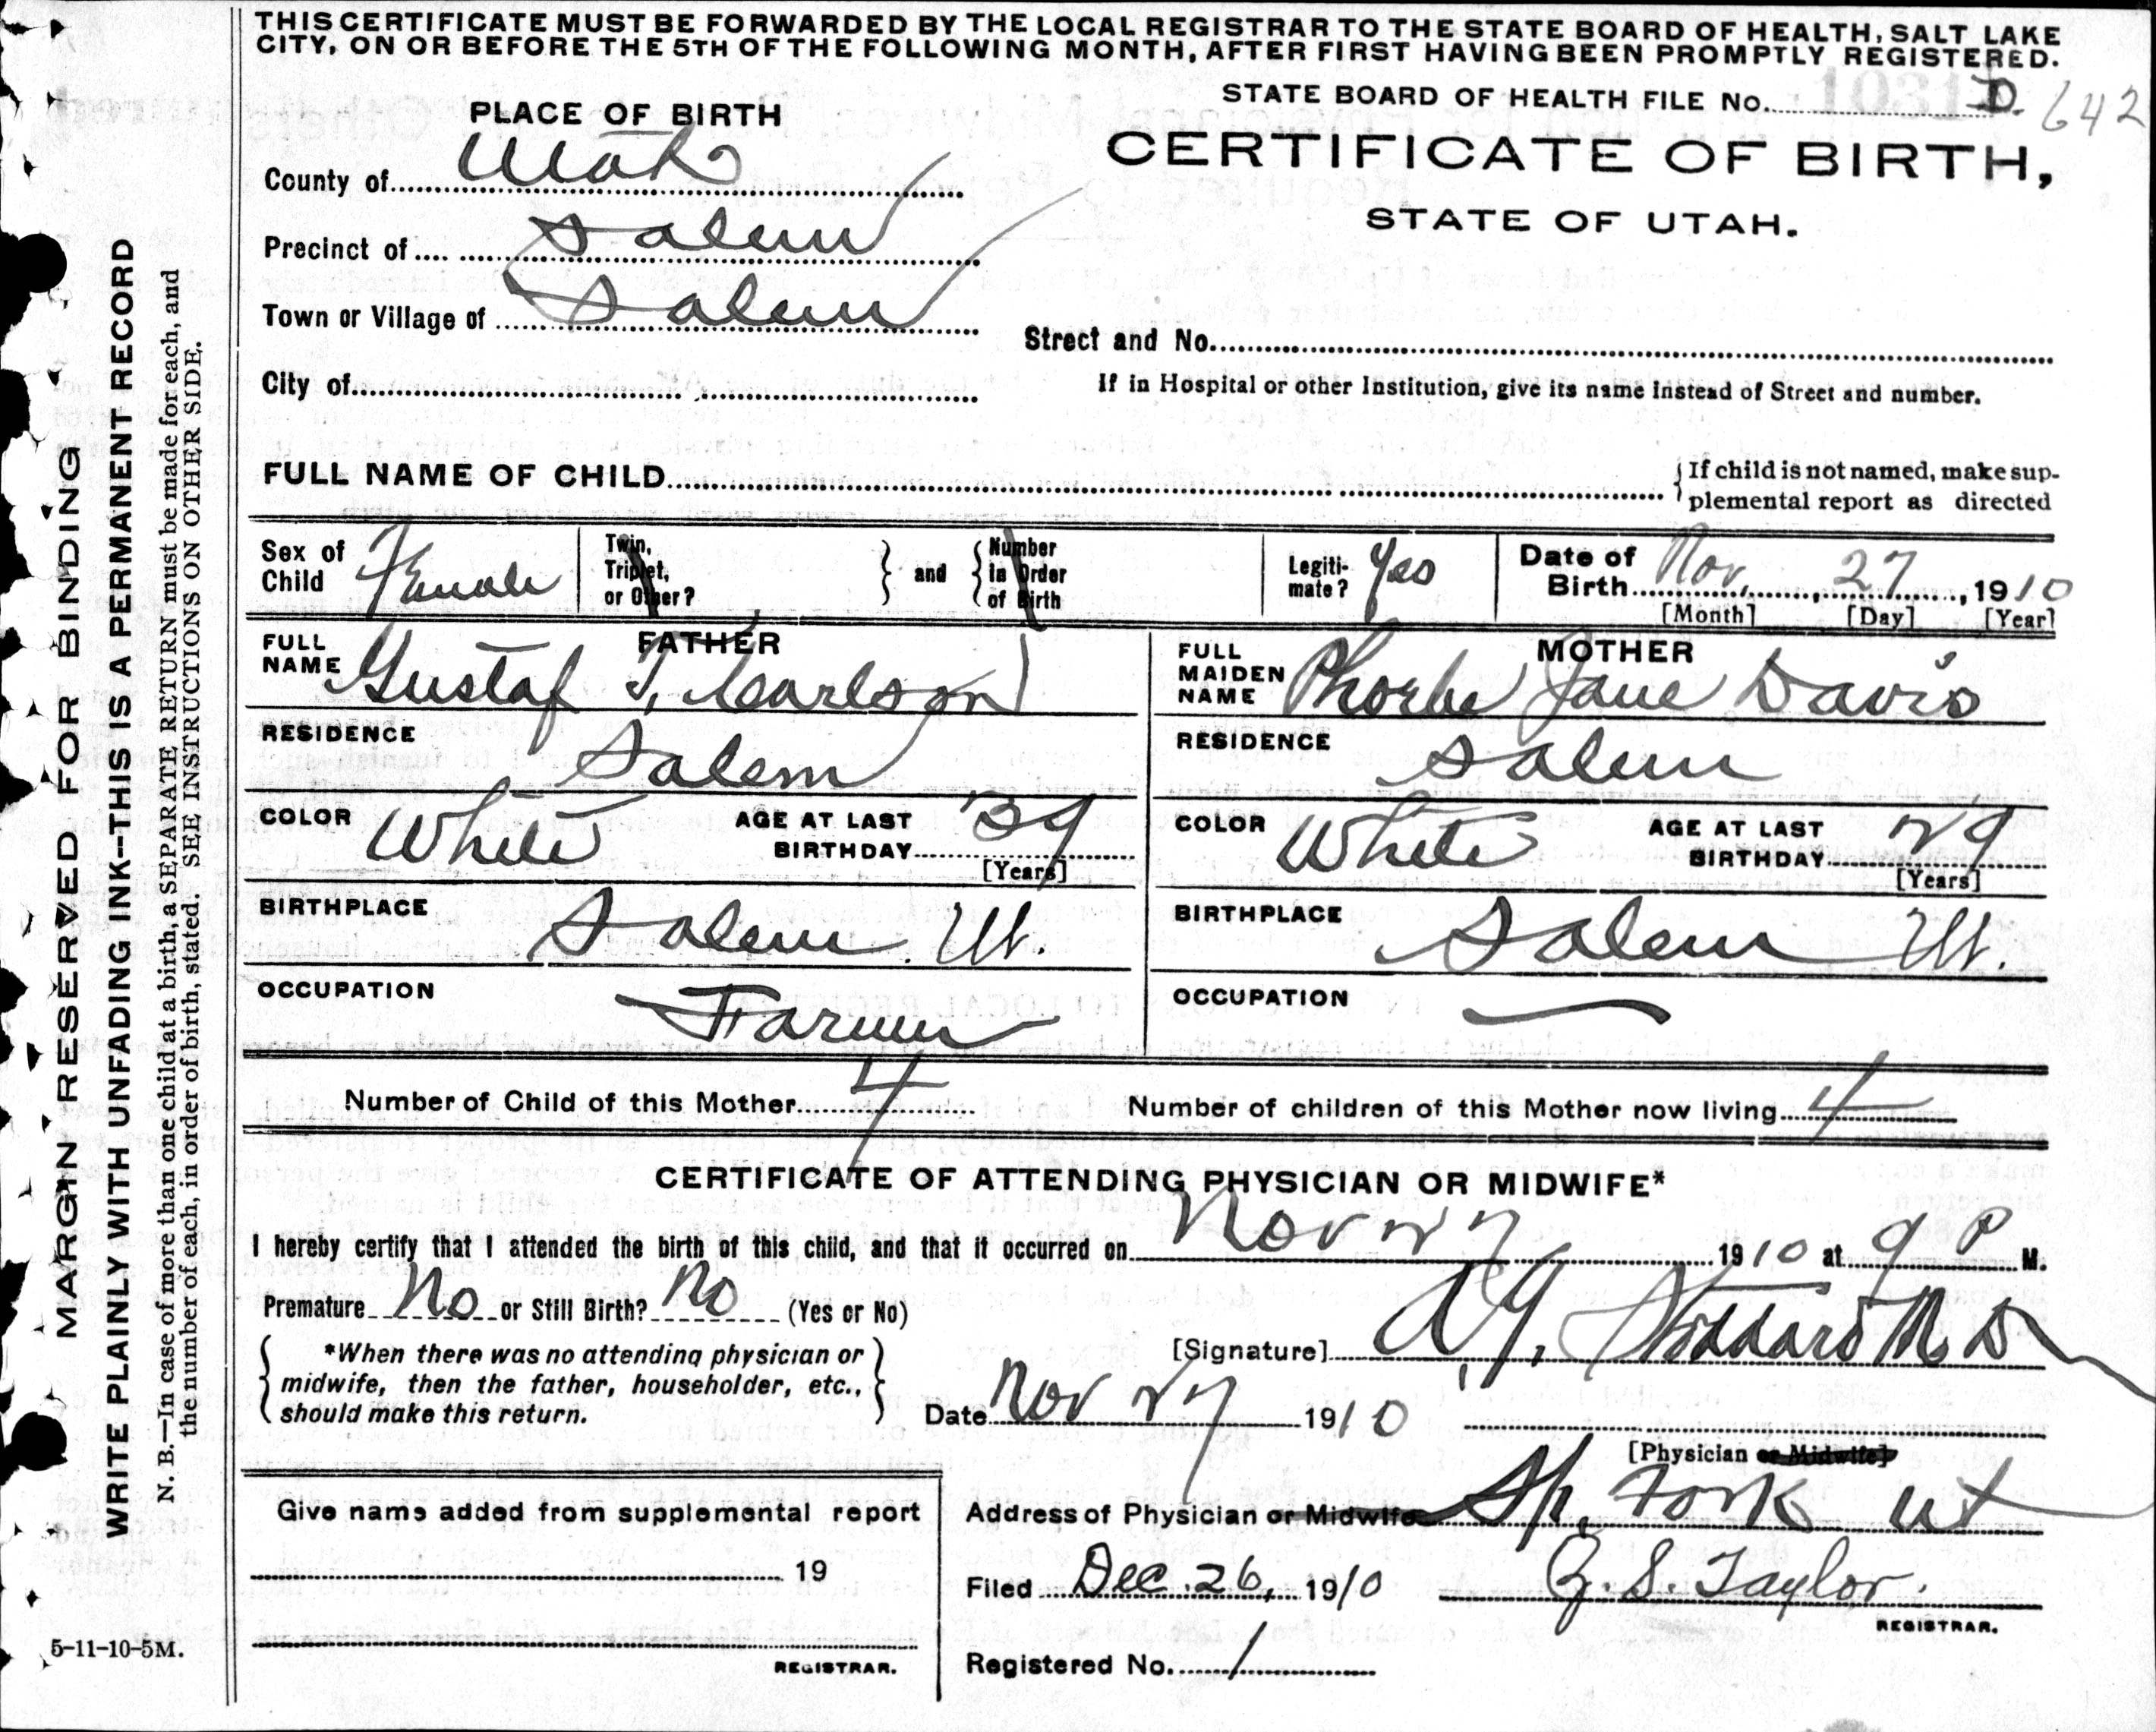 THIS CERTIFICATE MUST BE FORWARDED BY THE LOCAL REGISTRAR TO THE STATE BOARD OF HEALTH, SALT LAKE
CITY, ON OR BEFORE THE 5TH OF THE FOLLOWING MONTH, AFTER FIRST HAVING BEEN PROMPTLY REGISTERED.
STATE BOARD OF HEALTH FILE No. 642
PLACE OF BIRTH
CERTIFICATE OF BIRTH,
STATE OF UTAH.
County of Utah
Precinct of Salem
Town or Village of Salem
Street and No.
City of
If in Hospital or other Institution, give its name instead of Street and number.
FULL NAME OF CHILD
If child is not named, make sup-
plemental report as directed
Sex of Child Female
Twin, Triplet, or Other?
and
Number in Order of Birth
Legiti-mate? Yes
Date of Birth Nov. 27, 1910
[Month] [Day] [Year]
FATHER
FULL NAME Gustaf T. Carlson
RESIDENCE Salem
COLOR White AGE AT LAST BIRTHDAY 39
[Years]
BIRTHPLACE Salem. Ut.
OCCUPATION Farmer
MOTHER
FULL MAIDEN NAME Phoebe Jane Davis
RESIDENCE Salem
COLOR White AGE AT LAST BIRTHDAY 29
[Years]
BIRTHPLACE Salem Ut.
OCCUPATION —
Number of Child of this Mother 4
Number of children of this Mother now living 4
CERTIFICATE OF ATTENDING PHYSICIAN OR MIDWIFE*
I hereby certify that I attended the birth of this child, and that it occurred on Nov 27 1910 at 9 P M.
Premature No or Still Birth? No (Yes or No)
*When there was no attending physician or
midwife, then the father, householder, etc.,
should make this return.
[Signature] Stoddard M D
Date Nov 27 1910
[Physician or Midwife]
Address of Physician or Midwife Sp. Fork Ut
Filed Dec. 26, 1910
S. Taylor.
REGISTRAR.
Registered No. 1
Give name added from supplemental report
19
REGISTRAR.
MARGIN RESERVED FOR BINDING
WRITE PLAINLY WITH UNFADING INK--THIS IS A PERMANENT RECORD
N. B.—In case of more than one child at a birth, a SEPARATE RETURN must be made for each, and
the number of each, in order of birth, stated. SEE INSTRUCTIONS ON OTHER SIDE.
5-11-10-5M.